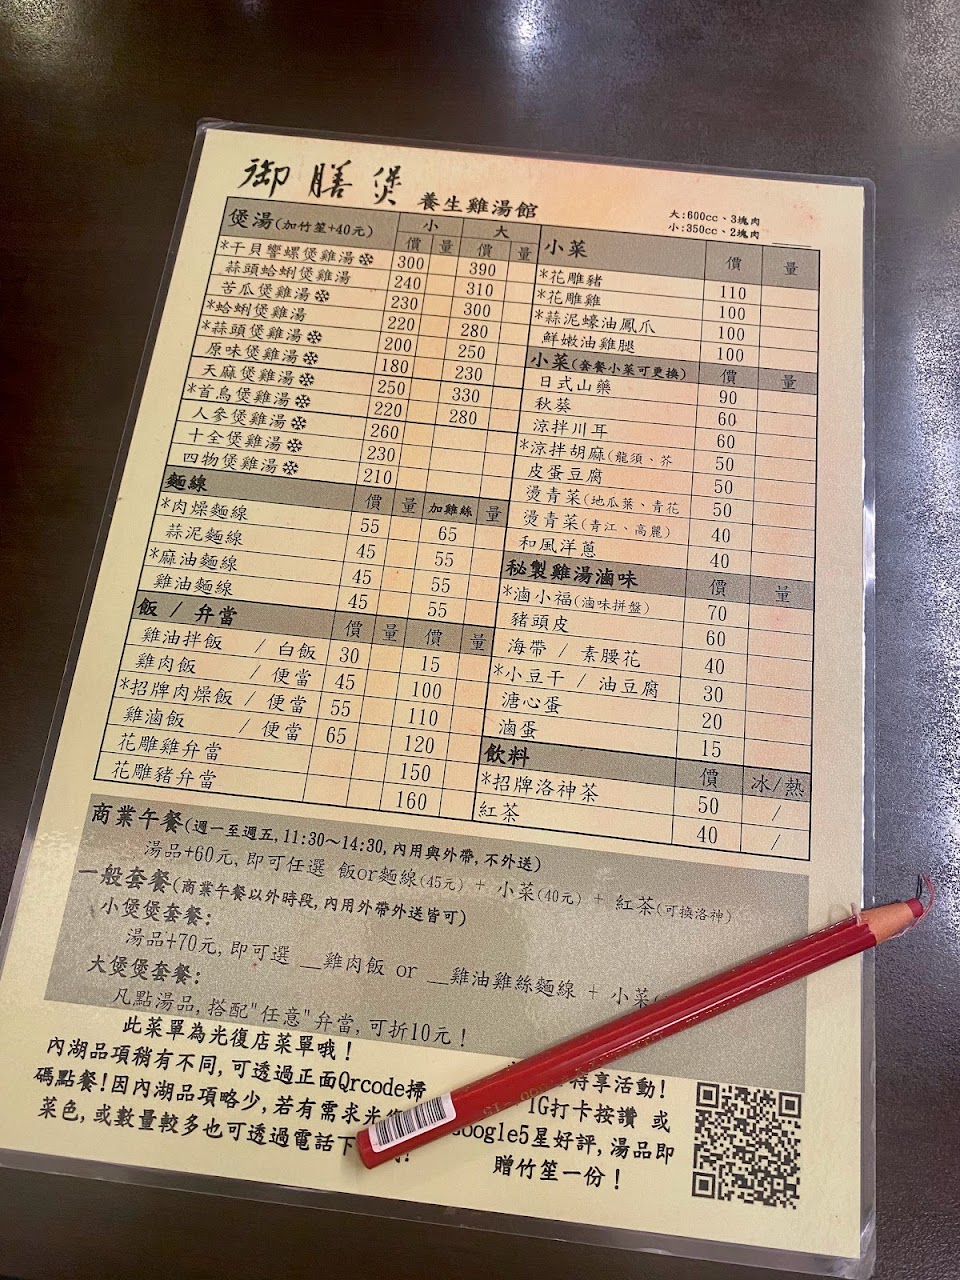 御膳煲 養生雞湯館
大:600cc、3塊肉
小:350cc、2塊肉
煲湯(加竹笙+40元) 小 大
價 量 價 量
*干貝響螺煲雞湯❄ 300 390
蒜頭蛤蜊煲雞湯 240 310
苦瓜煲雞湯❄ 230 300
*蛤蜊煲雞湯 220 280
*蒜頭煲雞湯❄ 200 250
原味煲雞湯❄ 180 230
天麻煲雞湯❄ 250 330
*首烏煲雞湯❄ 220 280
人參煲雞湯❄ 260
十全煲雞湯❄ 230
四物煲雞湯❄ 210
麵線 價 量 加雞絲 量
*肉燥麵線 55 65
蒜泥麵線 45 55
*麻油麵線 45 55
雞油麵線 45 55
飯 / 弁當 價 量 價 量
雞油拌飯 / 白飯 30 15
雞肉飯 / 便當 45 100
*招牌肉燥飯 / 便當 55 110
雞滷飯 / 便當 65 120
花雕雞弁當 150
花雕豬弁當 160
小菜 價 量
*花雕豬 110
*花雕雞 100
*蒜泥蠔油鳳爪 100
鮮嫩油雞腿 100
小菜(套餐小菜可更換) 價 量
日式山藥 90
秋葵 60
涼拌川耳 60
*涼拌胡麻(龍須、芥 50
皮蛋豆腐 50
燙青菜(地瓜葉、青花 50
燙青菜(青江、高麗) 40
和風洋蔥 40
秘製雞湯滷味 價 量
*滷小福(滷味拼盤) 70
豬頭皮 60
海帶 / 素腰花 40
*小豆干 / 油豆腐 30
溏心蛋 20
滷蛋 15
飲料 價 冰/熱
*招牌洛神茶 50 /
紅茶 40 /
商業午餐(週一至週五,11:30~14:30,內用與外帶,不外送)
湯品+60元,即可任選 飯or麵線(45元) + 小菜(40元) + 紅茶(可換洛神)
一般套餐(商業午餐以外時段,內用外帶外送皆可)
小煲煲套餐:
湯品+70元,即可選 __雞肉飯 or __雞油雞絲麵線 + 小菜
大煲煲套餐:
凡點湯品,搭配"任意"弁當,可折10元!
此菜單為光復店菜單哦!
內湖品項稍有不同,可透過正面Qrcode掃
碼點餐!因內湖品項略少,若有需求光復
菜色,或數量較多也可透過電話下
特享活動!
IG打卡按讚 或
Google5星好評,湯品即
贈竹笙一份!